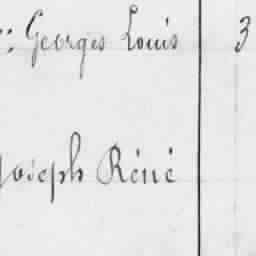 : Georges Louis 3
Joseph Réné